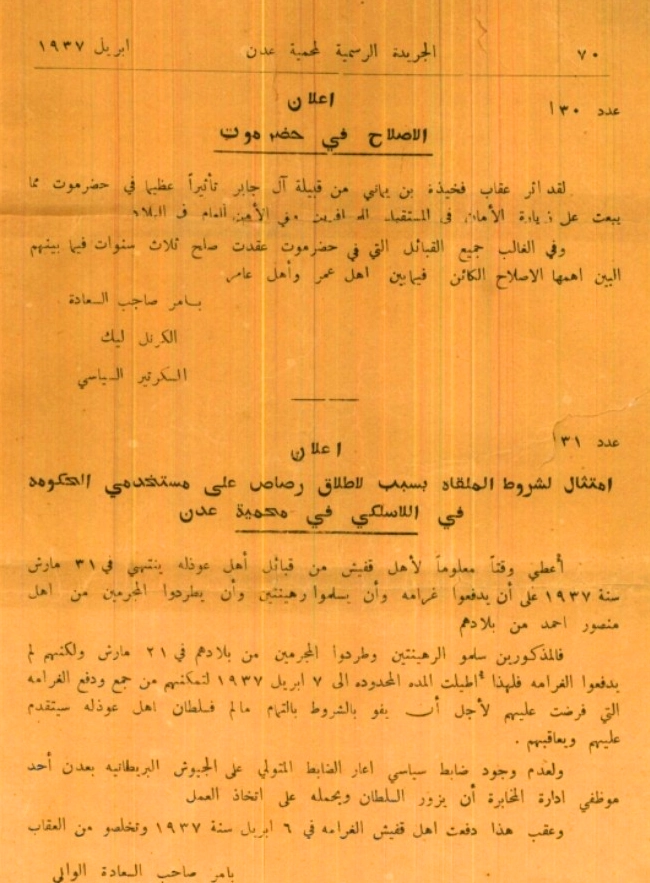 ٧٠ الجريدة الرسمية لمحمية عدن ابريل ١٩٣٧
عدد ٣٠
اعلان
الاصلاح في حضرموت
لقد اثر عقاب فخيذة بن يماني من قبيلة آل جابر تأثيراً عظيما في حضرموت مما
يبعث على زيادة الأمان في المستقبل وفي الأمن العام في البلاد
وفي الغالب جميع القبائل التي في حضرموت عقدت صلح ثلاث سنوات فيما بينهم
البين اهمها الاصلاح الكائن فيمابين اهل عمر وأهل عامر
بامر صاحب السعادة
الكرنل ليك
السكرتير السياسي
عدد ٣١
اعلان
امتثال لشروط الملقاه بسبب لاطلاق رصاص على مستخدمي الحكومه
في اللاسلكي في محمية عدن
أعطي وقتاً معلوماً لأهل قفيش من قبائل أهل عوذله ينتهي في ٣١ مارش
سنة ١٩٣٧ على أن يدفعوا غرامه وأن يسلموا رهينتين وأن يطردوا المجرمين من اهل
منصور احمد من بلادهم
فالمذكورين سلمو الرهينتين وطردوا المجرمين من بلادهم في ٢١ مارش ولكنهم لم
يدفعوا الغرامه فلهذا اطيلت المده المحدوده الى ٧ ابريل ١٩٣٧ لتمكنهم من جمع ودفع الغرامه
التي فرضت عليهم لأجل أن يفو بالشروط بالتمام مالم فسلطان اهل عوذله سيتقدم
عليهم ويعاقبهم .
ولعدم وجود ضابط سياسي اعار الضابط المتولي على الجيوش البريطانيه بعدن أحد
موظفي ادارة المخابرة أن يزور السلطان ويحمله على اتخاذ العمل
وعقب هذا دفعت اهل قفيش الغرامه في ٦ ابريل سنة ١٩٣٧ وتخلصو من العقاب
بامر صاحب السعادة الوالي